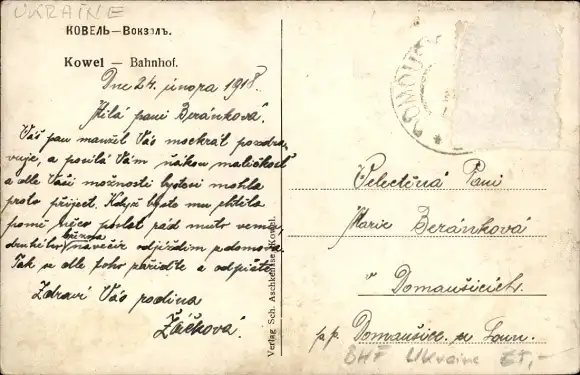 UKRAINE
КОВЕЛЬ—Вокзалъ.
Kowel — Bahnhof.
Dne 24. února 1918.
Milá paní Beránková.
Váš pan manžel Vás mockrát pozdra-
vuje, a posílá Vám ňákou maličkost
a dle Vaší možnosti byste mohla
proto přiject. Když byste mu chtěla
po mě něco poslat rád mu to vemu,
druhého března navečír odjíždím z domova.
Tak se dle toho zařiďte a odpište
Zdraví Vás rodina
Žáčková.
Verlag Sch. Aschkenase, Kowel.
DOMOUŠ
Velectěná Paní
Marie Beránková
v
Domaušicích.
p. Domaušice u Loun.
BHF Ukraine 25,-